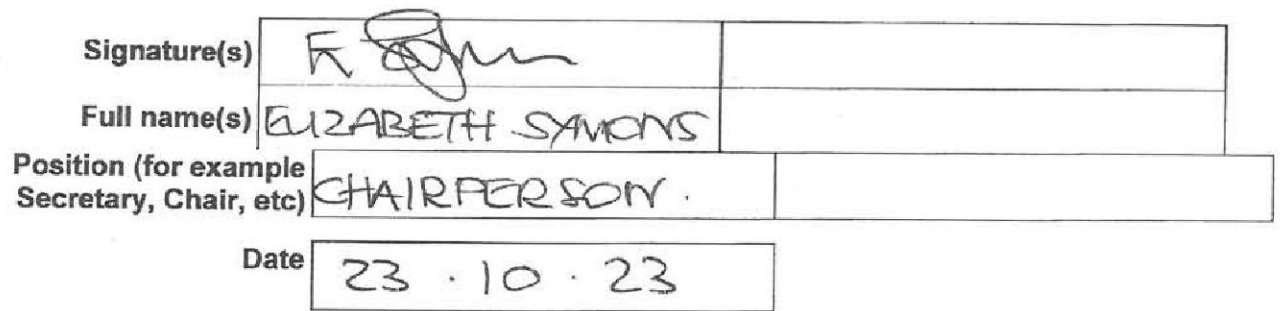 Signature(s)
Full name(s) ELIZABETH SYMONS
Position (for example
Secretary, Chair, etc) CHAIRPERSON.
Date 23 . 10 . 23